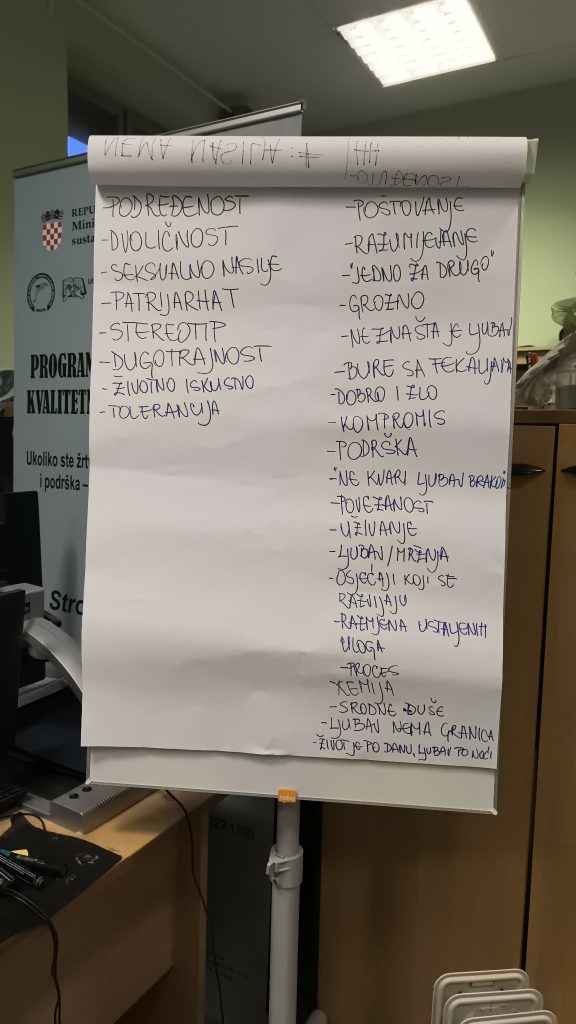 NEMA NASILJA:
-PODREĐENOST
-DVOLIČNOST
-SEKSUALNO NASILJE
-PATRIJARHAT
-STEREOTIP
-DUGOTRAJNOST
-ŽIVOTNO ISKUSNO
-TOLERANCIJA
-POŠTOVANJE
-RAZUMIJEVANJE
-"JEDNO ZA DRUGO"
-GROZNO
-NE ZNA ŠTA JE LJUBAV
-BURE SA FEKALIJAMA
-DOBRO I ZLO
-KOMPROMIS
-PODRŠKA
-"NE KVARI LJUBAV BRAKOM"
-POVEZANOST
-UŽIVANJE
-LJUBAV/MRŽNJA
-OSJEĆAJI KOJI SE
RAZVIJAJU
-RAZMJENA USTALJENIH
ULOGA
-PROCES
-KEMIJA
-SRODNE DUŠE
-LJUBAV NEMA GRANICA
-ŽIVOT JE PO DANU, LJUBAV PO NOĆI
REPU
Mini
susta
PROGRAM
KVALITETN
Ukoliko ste žrt
i podrška –
Stro
nobo
222 1399